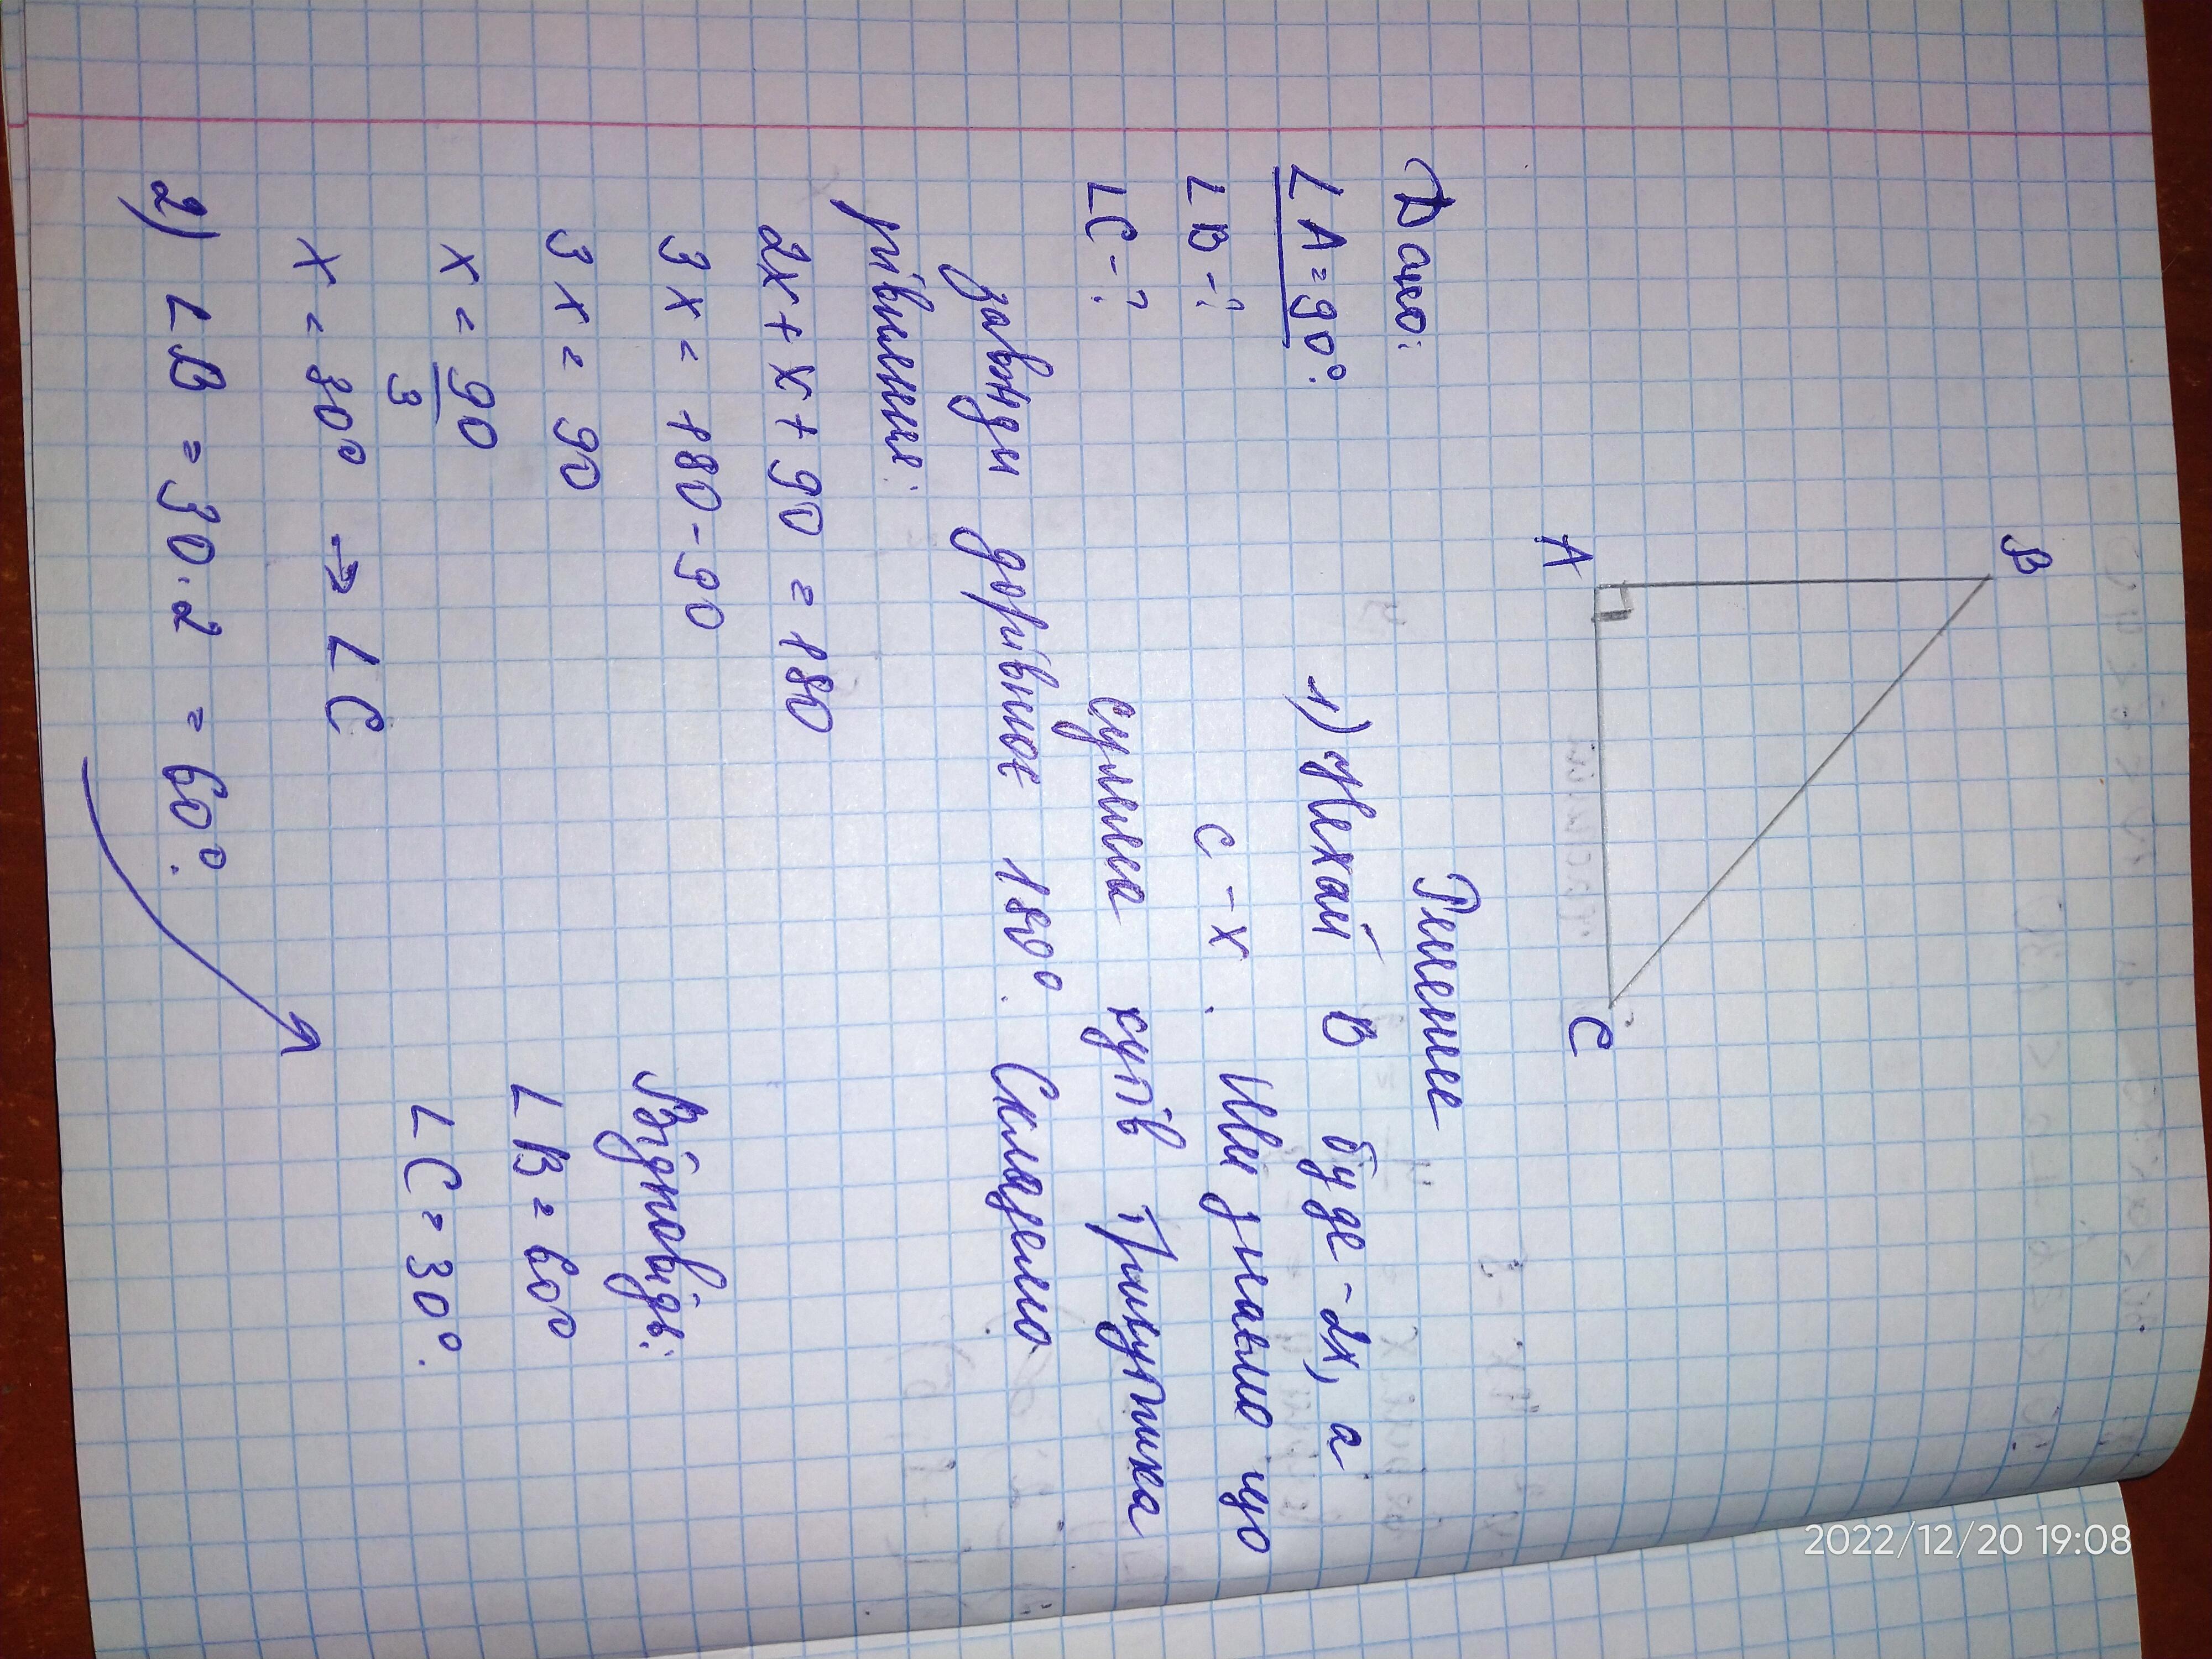 B
A
C
Дано:
Решение
∠A = 90°.
1) Нехай B буде - 2x, а
∠B - ?
C - x. Ми знаємо що
∠C - ?
сумма кутів трикутника
завжди дорівнює 180°. Складемо
рівняння:
2x + x + 90 = 180
3x = 180 - 90
3x = 90
x = 90/3
x = 30° → ∠C
2) ∠B = 30 · 2 = 60°.
Відповідь:
∠B = 60°
∠C = 30°.
2022/12/20 19:08